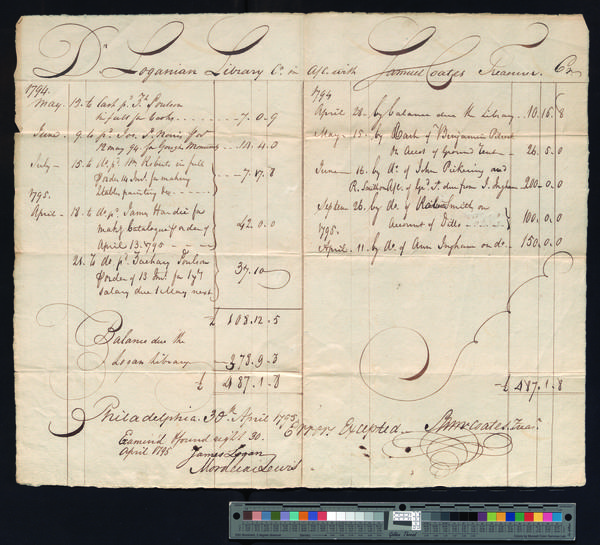 Dr Loganian Library Co. in a/c with Samuel Coates Treasurer. Cr
1794.
May. 13. to Cash pd. Zh. Poulson
in full for Books - 7.0.9
June 9. to pd. Jos. P. Norris for
12 may 94. for Ground 14.4.0
July - 15. to do. pd. Wm. Roberts in full
for making
painting &c - 7.17.8
1795.
April - 18. to do pd. James Hardie for
makg. Catalogue order of
April 13. 1795 - 42.0.0
21. to do pd. Zachary Poulson
order of 13 for 1 yr.
salary due 1 May next 37.10
£ 108.12.5
Balance due the
Logan Library 378.9.3
£ 487.1.8
1794
April 28. by Balance due the Library. 10.16.8
May - 15. by Cash of Benjamin
on Acct. of Ground Rent 26.5.0
June 16. by do. of John Pickering and
R. Smith on a/c. of due from J. Ingham 200.0.0
Septem 26. by do. of Smith on
Account of Ditto 100.0.0
1795.
April. 11. by do. of Ann Ingham on do. 150.0.0
£ 487.1.8
Philadelphia. 30th. April 1795.
Errors Excepted - Saml. Coates. Treasr.
Examined & found right 30.
April 1795
James Logan
Mordecai Lewis